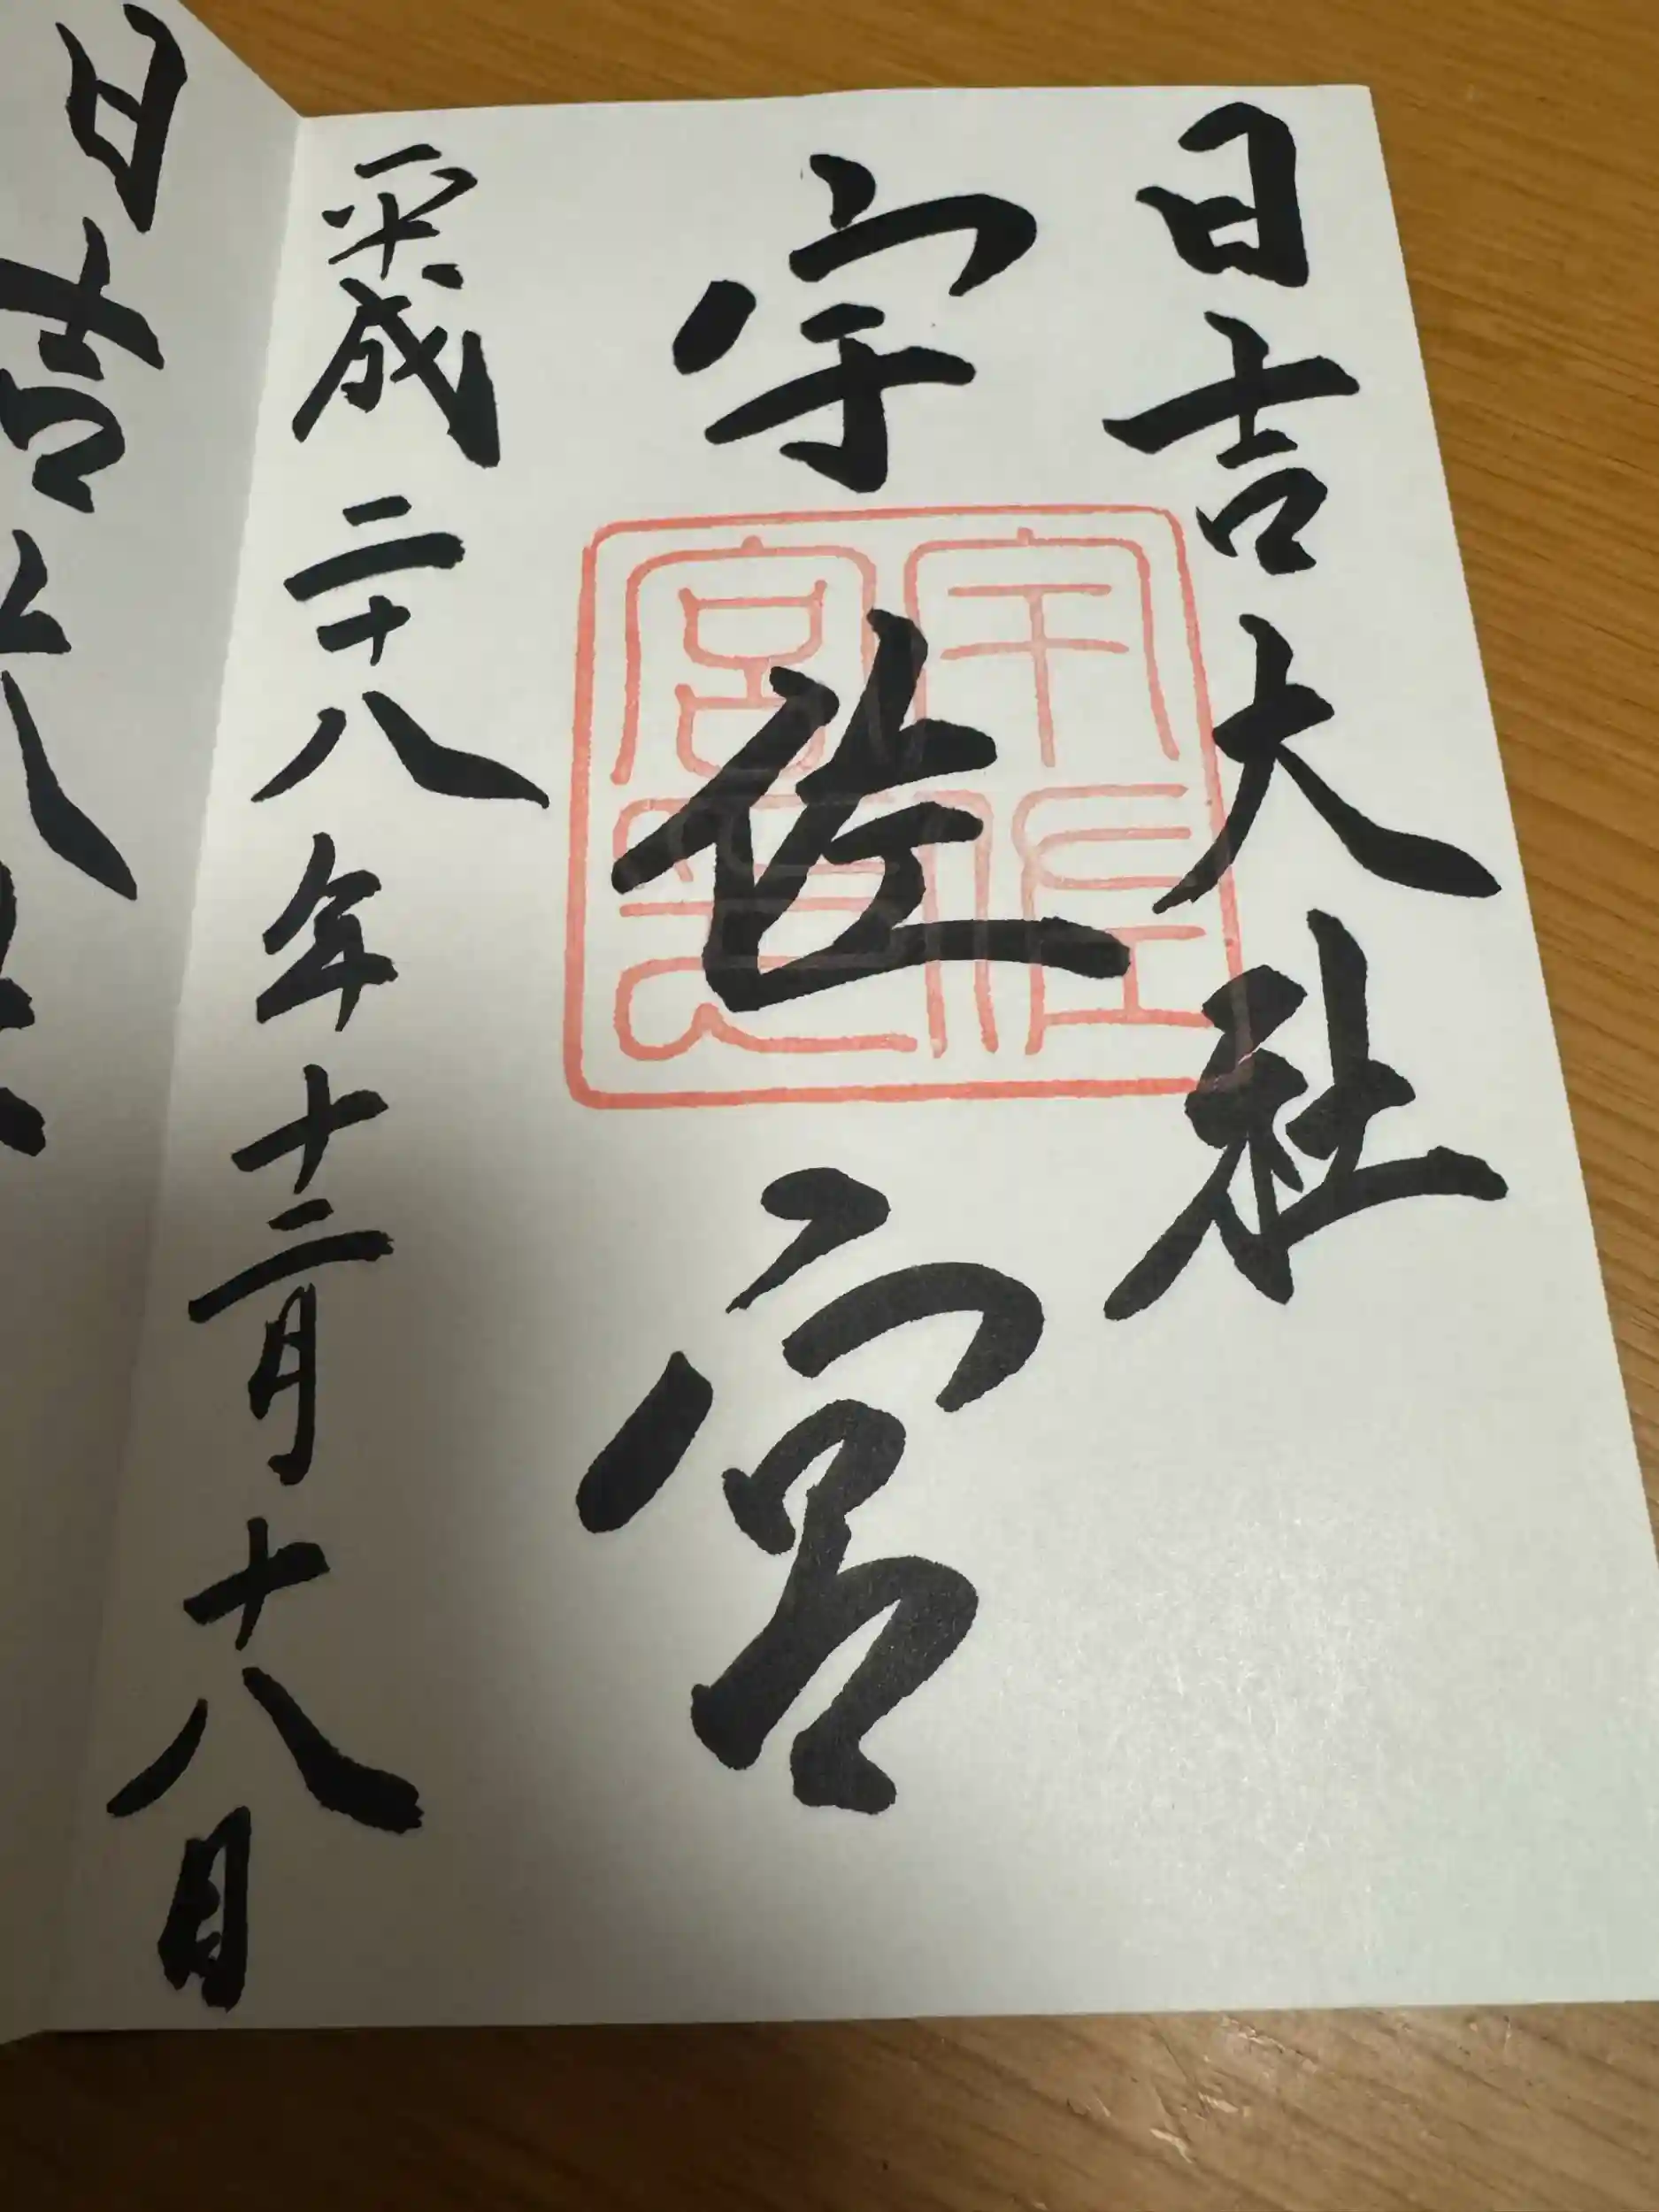 日吉大社
宇佐宮
宇佐宮印
平成二十八年十二月十八日
日吉大